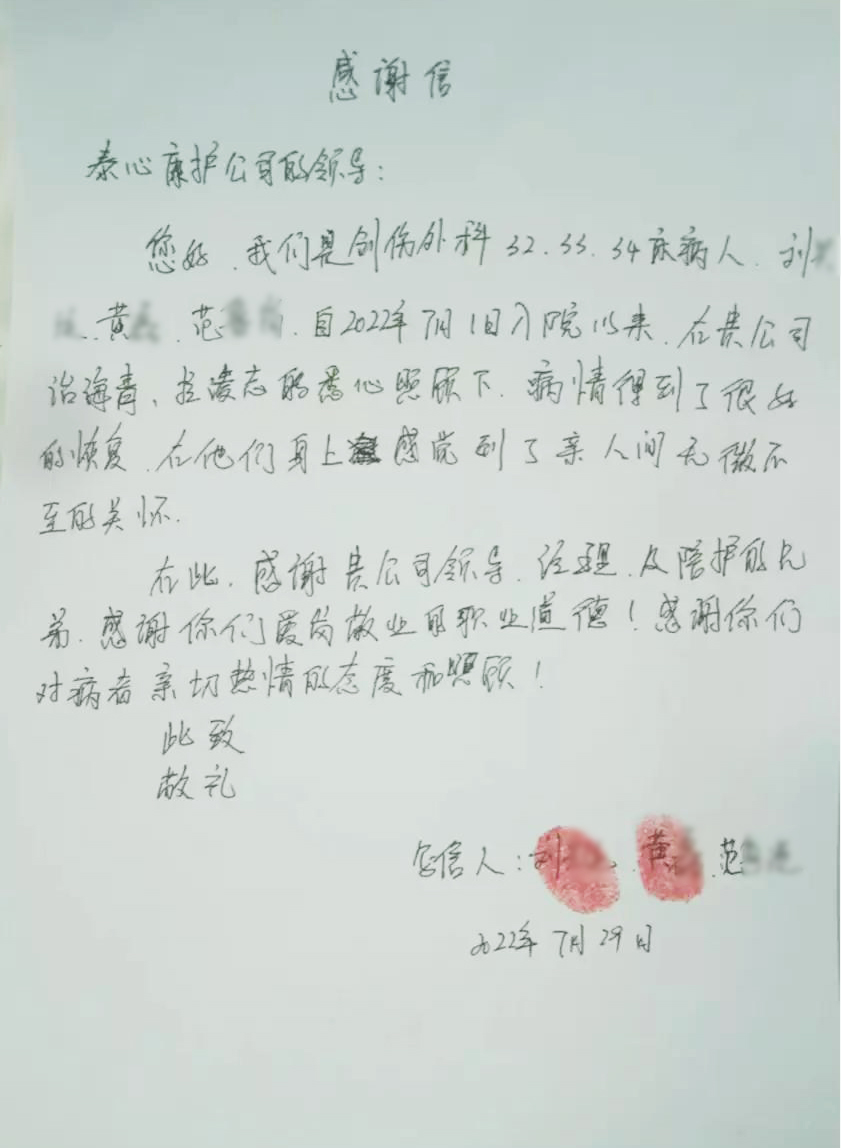 感谢信
泰心康护公司的领导：
您好、我们是创伤外科32.33.34床病人、刘
、黄、范、自2022年7月1日入院以来、在贵公司
海青、凌志的悉心照顾下、病情得到了很好
的恢复、在他们身上感觉到了亲人间无微不
至的关怀.
在此、感谢贵公司领导、经理、及陪护的兄
弟、感谢你们爱岗敬业的职业道德！感谢你们
对病者亲切热情的态度和照顾！
此致
敬礼
写信人：刘、黄、范
2022年7月29日